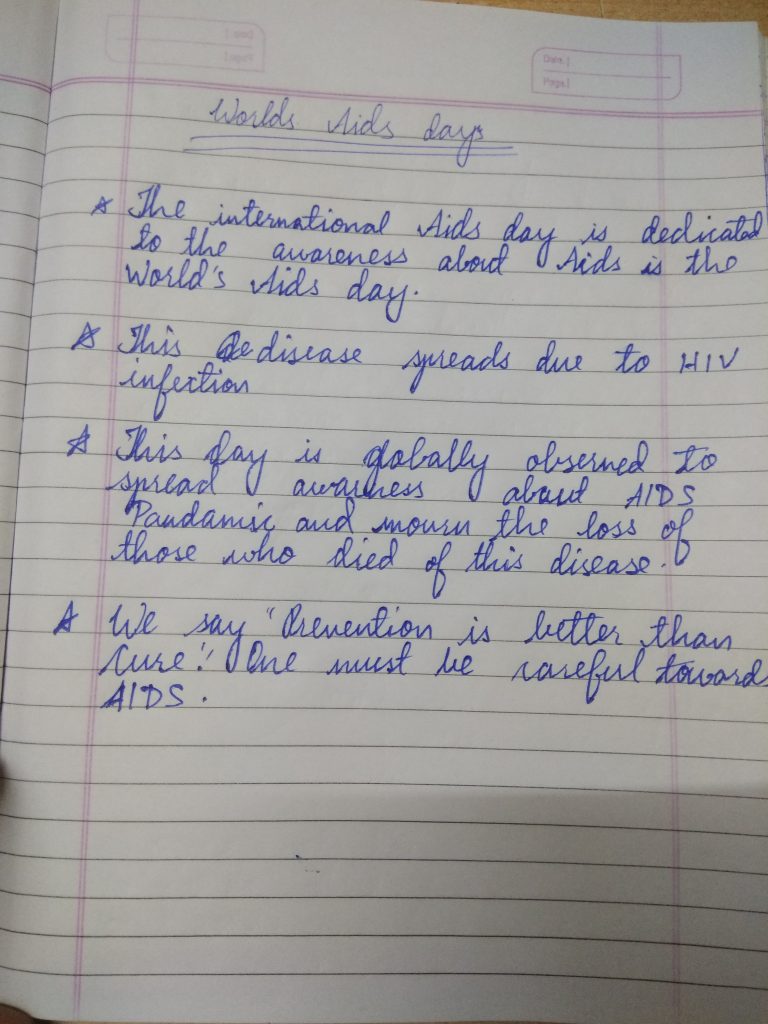 Date |
Page |
Worlds Aids days
The international Aids day is dedicated
to the awareness aboud Aids is the
World's Aids day.
This disease spreads due to HIV
infection
This day is globally observed to
spread awarness about AIDS
Pandamic and mourn the loss of
those who died of this disease.
We say "Prevention is better than
Cure". One must be careful toward
AIDS.